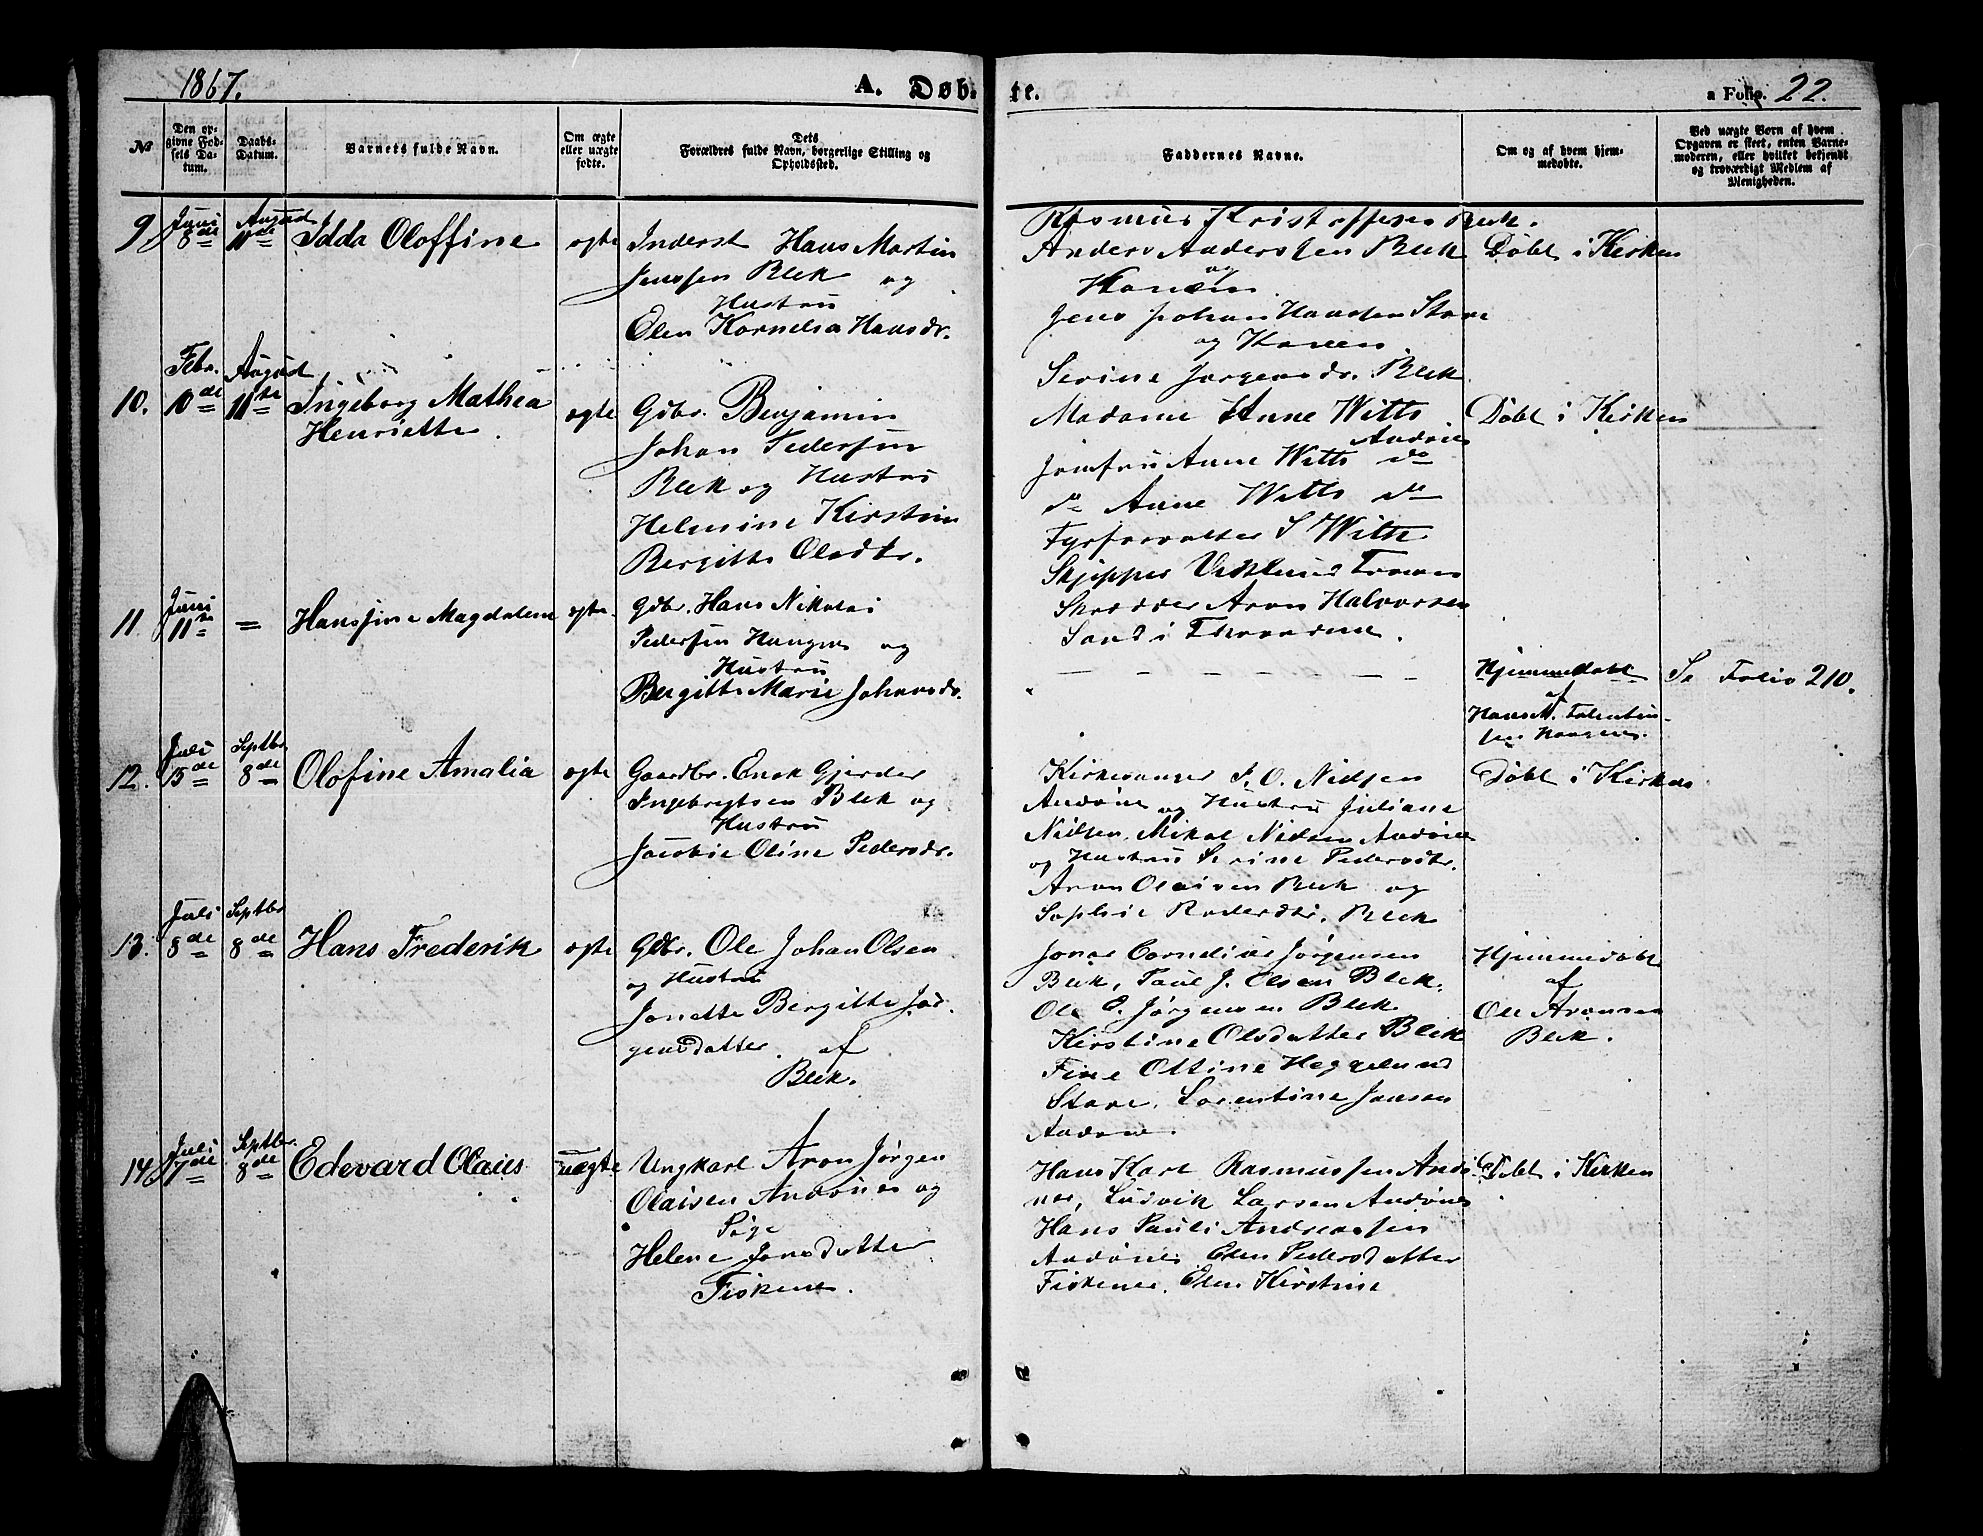 1867.
A. Døb-
te.
a Folio. 22.
No
Den op-
givne Fød-
sels Da-
tum.
Daabs-
Datum.
Barnets fulde Navn.
Om ægte
eller uægte
født.
Dets
Forældres fulde Navn, borgerlige Stilling og
Opholdssted.
Faddernes Navne.
Om og af hvem hjem-
medøbte.
Ved uægte Børn af hvem
Opgaven er skeet, enten Barne-
moderen, eller hvilket bekjendt
og troværdigt Medlem af
Menigheden.
9
Juni
8de
August
11de
Idda Oloffine
ægte
Inderst Hans Martin
Jenssen Bleik og
Hustru
Elen Kornelia Hansdr.
Rasmus Kristoffersen Bleik.
Anders Anderssen Bleik
og
Konen
Jens Johan Hansen Stave
og Konen.
Serine Jørgensdr. Bleik
Døbt i Kirken
10.
Febr.
10de
August
11te
Ingeborg Mathea
Henriette.
ægte
Gdbr. Benjamin
Johan Pedersen
Bleik og Hustru
Helmine Kirstine
Bergitte Olsdtr.
Madame Anne Witts
Andøen
Jomfru Anne Witts do
do Anne Witts do
Fyrforvalter S Witt
Skjipper
Skrædder Aron Halvorsen
Sand i Throndenæs.
Døbt i Kirken
11
Juni
11te
=
Hanssine Magdalene
ægte
Gdbr. Hans Nikolai
Pederssen Haugnes og
Hustru
Bergitte Marie Johansdr.
— — — — — — —
Hjemmedøbt
af
Hans M.
sen Haugnes.
Se Folio 210.
12.
Juli
15de
Septbr
8de
Olofine Amalia
ægte
Gaardbr. Enok Gjerder
Ingebregtsen Bleik og
Hustru
Jacobie Oline Pedersdr.
Kirkesanger P. O. Nielsen
Andøen og Hustru Juliane
Nielsen, Mikal Nielsen Andøen
og Hustru Serine Pedersdtr.
Aron Olaisen Bleik og
Sophie Pedersdtr. Bleik
Døbt i Kirken
13.
Juli
8de
Septbr
8de
Hans Frederik
ægte
Gdbr. Ole Johan Olsen
og Hustru
Jonette Bergitte Jør-
gensdatter. af
Bleik.
Jonas Cornelius Jørgensen
Bleik, Paul J. Olsen Bleik.
Ole P. Jørgensen Bleik
Kirstine Olsdatter Bleik
Fine Ottine Heggelund
Stave. Lorentine Jonsen
Andøen.
Hjemmedøbt
af
Ole Aronsen
Bleik.
14
Juli
17de
Septbr.
8de
Edevard Olaus
uægte
Ungkarl Aron Jørgen
Olaisen Andønes og
Pige
Helene Jensdatter
Fiskenes.
Hans Karl Rasmussen Andø
nes, Ludvik Larsen Andønes
Hans Pauli Andreassen
Andønes Elen Pedersdatter
Fiskenes. Elen Kirstine
Døbt i Kirken